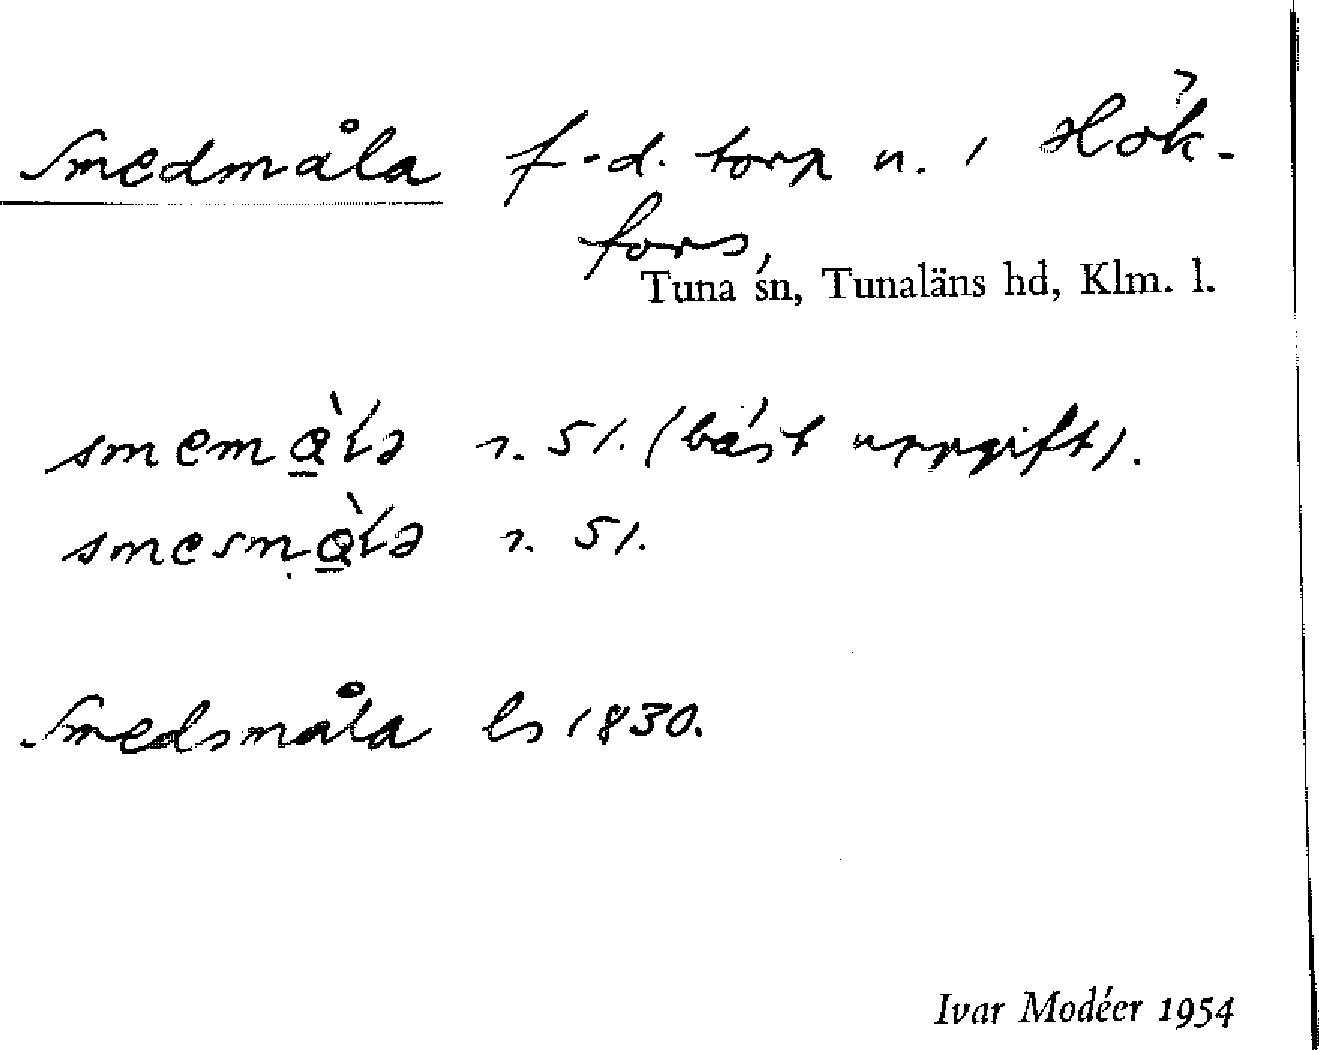 Smedmåla f.d. torp u. 1 Hök-
fors,
Tuna sn, Tunaläns hd, Klm. l.
51. (bäst uppgift).
51.
Smedsmåla ls 1830.
Ivar Modéer 1954